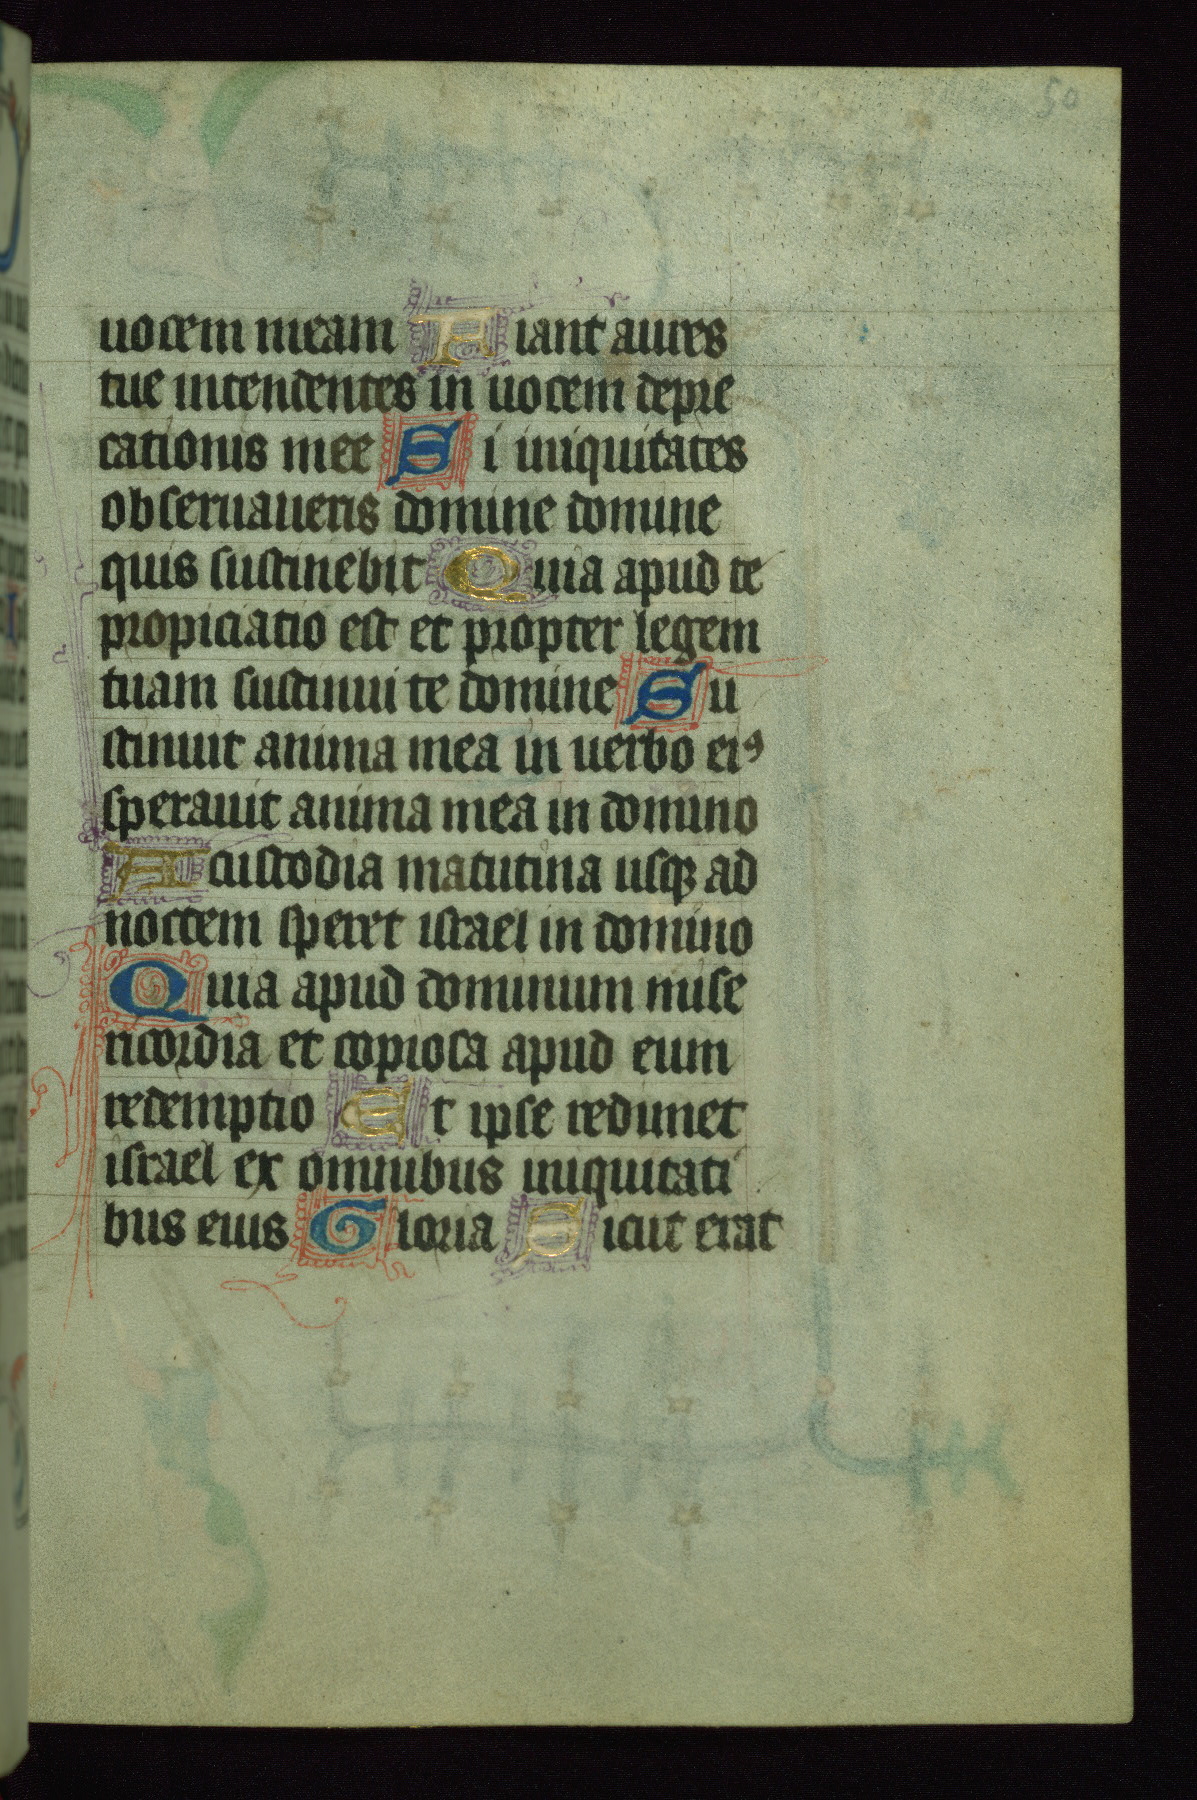 50
uocem meam Fiant aures
tue intendentes in uocem depre
cationis mee Si iniquitates
obseruaueris domine domine
quis sustinebit Quia apud te
propiciatio est et propter legem
tuam sustinui te domine Su
stinuit anima mea in uerbo eiꝰ
sperauit anima mea in domino
A custodia matutina usqꝫ ad
noctem speret israel in domino
Quia apud dominum mise
ricordia et copiosa apud eum
redemptio Et ipse redimet
israel ex omnibus iniquitati
bus eius Gloria Sicut erat